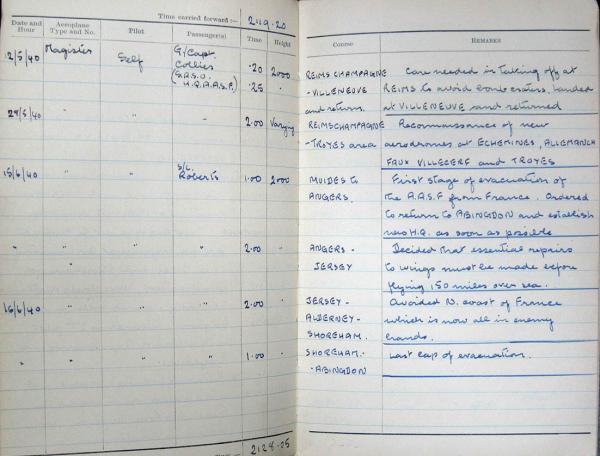 Time carried forward :— 219.20
Date and Hour Aeroplane Type and No. Pilot Passenger(s) Time Height Course REMARKS
12/5/40 Magister Self G/Capt. ·20 2000 REIMS CHAMPAGNE Care needed in taking off at
Collier ·25 " -VILLENEUVE REIMS to avoid bomb craters. Landed
(S.A.S.O. and return. at VILLENEUVE and returned
H.Q.A.A.S.F.)
29/5/40 " " 2.00 Varying REIMS CHAMPAGNE Reconnaissance of new
-TROYES area aerodromes at ECHEMINES, ALLEMANCH
FAUX VILLECERF and TROYES
15/6/40 " " S/L. Roberts 1.00 2000 MUIDES to First stage of evacuation of
ANGERS. the A.A.S.F from France. Ordered
to return to ABINGDON and establish
new H.Q. as soon as possible
" " " " 2.00 " ANGERS - Decided that essential repairs
" JERSEY to wings must be made before
flying 150 miles over sea.
16/6/40 " " " 2.00 " JERSEY - Avoided N. coast of France
ALDERNEY - which is now all in enemy
SHOREHAM. hands.
" " " 1.00 " SHOREHAM. - Last lap of evacuation.
-ABINGDON
228.05